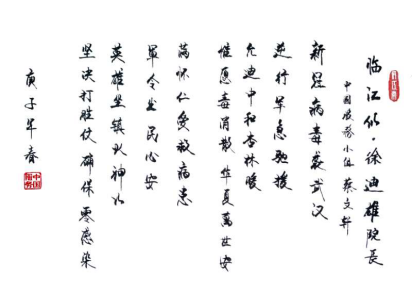 临江仙·徐迪雄院长
中国服务小 蔡文轩
新冠病毒袭武汉
逆行军急驰援
允迪中和杏林暖
惟愿毒消散 华夏万世安
满怀仁爱救病患
军令出 民心安
英雄坐镇 神
坚决打胜仗 确保零感染
庚子年春
中国服务